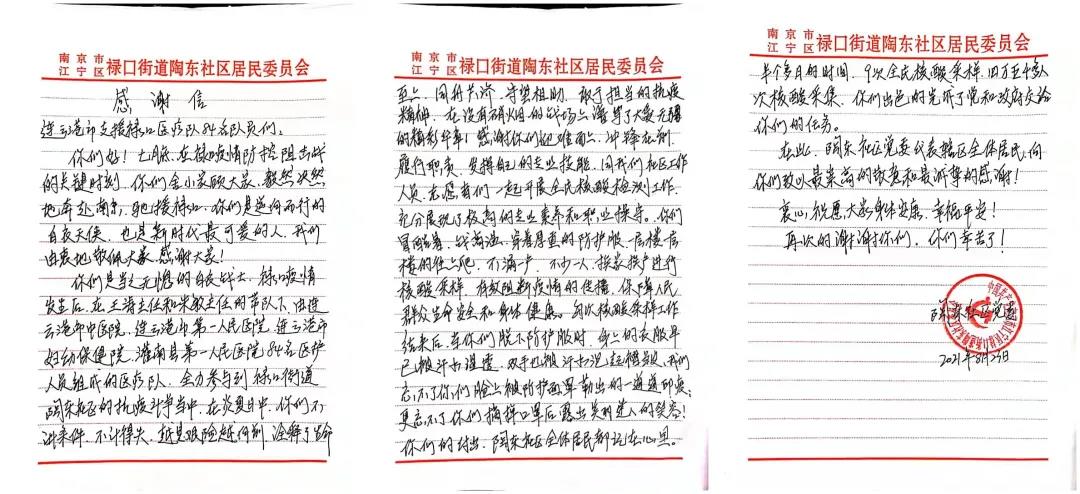 南京市
江宁区 禄口街道陶东社区居民委员会
感谢信
连云港市支援禄口医疗队84名队员们：
你们好！七月底，在禄口疫情防控阻击战
的关键时刻，你们舍小家顾大家，毅然决然
地奔赴南京，驰援禄口，你们是逆向而行的
白衣天使，也是新时代最可爱的人，我们
由衷地敬佩大家，感谢大家！
你们是当之无愧的白衣战士，禄口疫情
发生后，在王涛主任和米敏主任的带队下，由连
云港市中医院、连云港市第一人民医院、连云港市
妇幼保健院、灌南县第一人民医院84名医护
人员组成的医疗队，全力参与到禄口街道
陶东社区的抗疫斗争当中，在炎夏日中，你们不
讲条件，不计得失，越是艰险越向前，诠释了生命
南京市
江宁区 禄口街道陶东社区居民委员会
至上、同舟共济、守望相助、敢于担当的抗疫
精神，在没有硝烟的战场上谱写了大爱无疆
的精彩华章！感谢你们迎难而上，冲锋在前，
履行职责，发挥自己的专业技能，同我们社区工作
人员、志愿者们一起开展全民核酸检测工作，
充分展现了极高的专业素养和职业操守。你们
冒酷暑、战高温，穿着厚重的防护服，一层楼一层
楼的往上爬，不漏一户，不少一人，挨家挨户进行
核酸采样，有效阻断疫情的传播，保障人民
群众生命安全和身体健康。每次核酸采样工作
结束后，在你们脱下防护服时，身上的衣服早
已被汗水湿透，双手也被汗水泡起褶皱，我们
忘不了你们脸上被防护面罩勒出的一道道印痕；
更忘不了你们摘掉口罩后露出笑对迷人的笑容！
你们的付出，陶东社区全体居民都记在心里。
南京市
江宁区 禄口街道陶东社区居民委员会
半个多月的时间，9次全民核酸采样，四万五千多人
次核酸采集，你们出色的完成了党和政府交给
你们的任务。
在此，陶东社区党委代表辖区全体居民，向
你们致以最崇高的敬意和最诚挚的感谢！
衷心祝愿大家身体安康、幸福平安！
再次的谢谢你们，你们辛苦了！
陶东社区党委
2021年8月23日